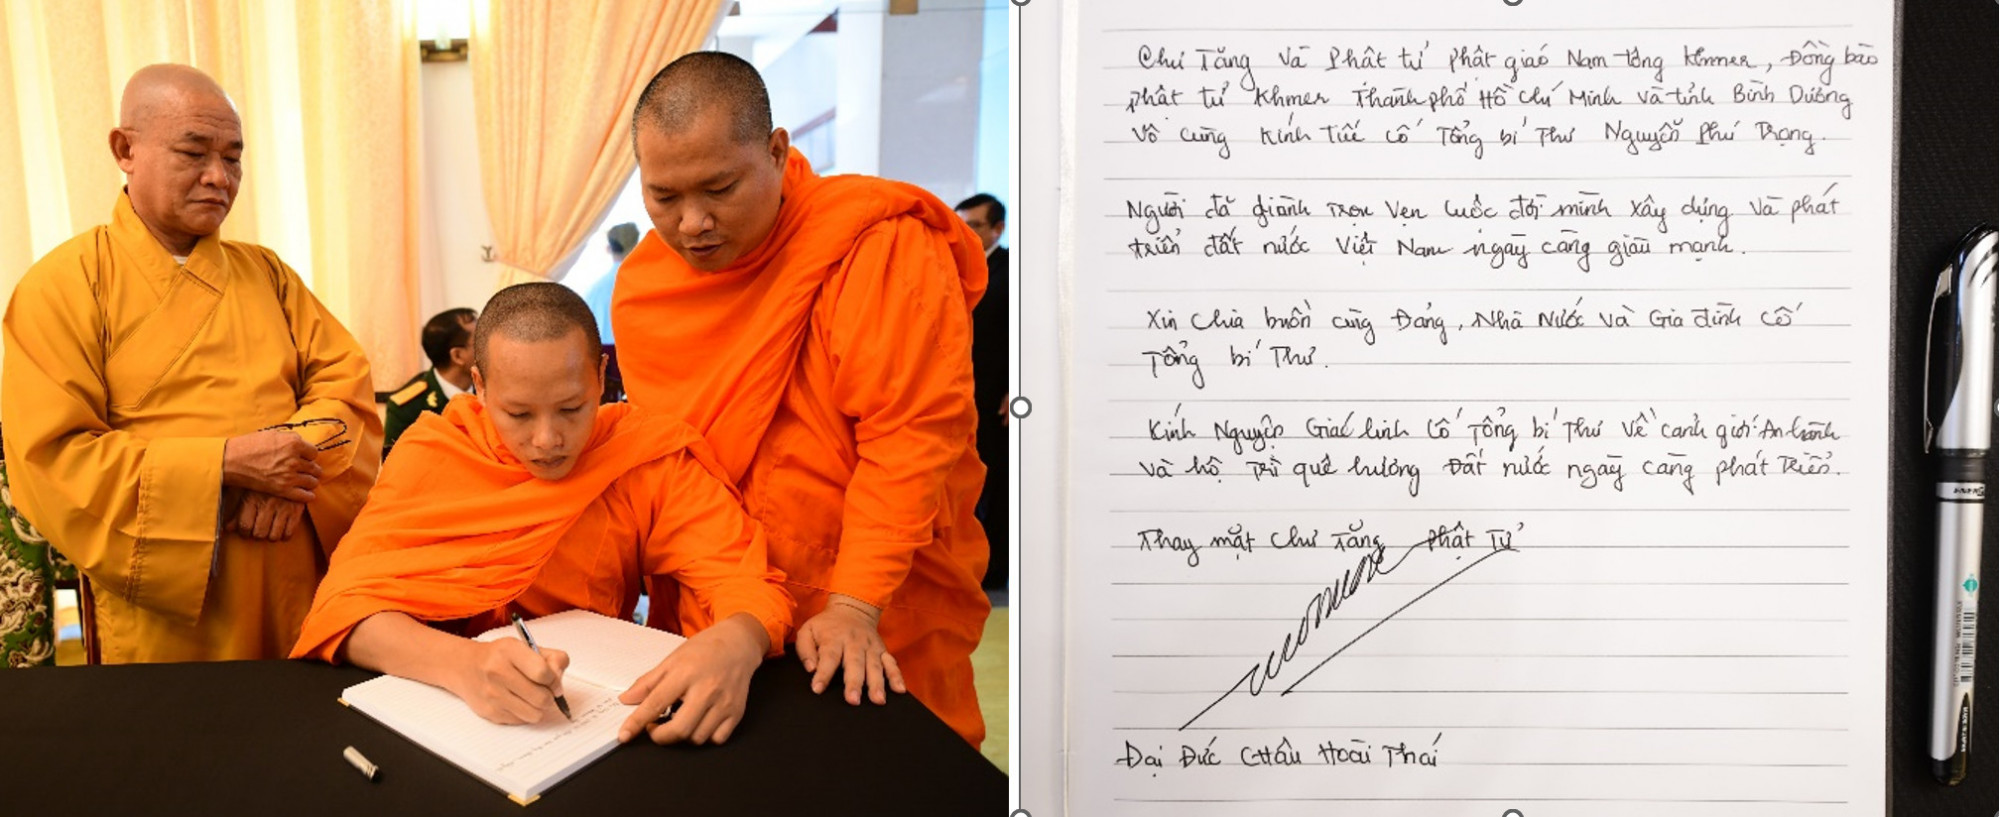 Chư Tăng và Phật tử Phật giáo Nam tông Khmer, Đồng bào
phật tử Khmer Thành phố Hồ Chí Minh và tỉnh Bình Dương
Vô cùng Kính Tiếc Cố Tổng bí Thư Nguyễn Phú Trọng.
Người đã giành Trọn Vẹn Cuộc đời mình xây dựng và phát
triển đất nước Việt Nam ngày càng giàu mạnh.
Xin Chia buồn cùng Đảng, Nhà Nước và Gia đình cố
Tổng bí Thư.
Kính Nguyện Giác linh Cố Tổng bí Thư Về cảnh giới An lành
và hộ Trì quê hương Đất nước ngày càng phát Triển.
Thay mặt Chư Tăng Phật Tử
Đại Đức CHÂU Hoài Thái